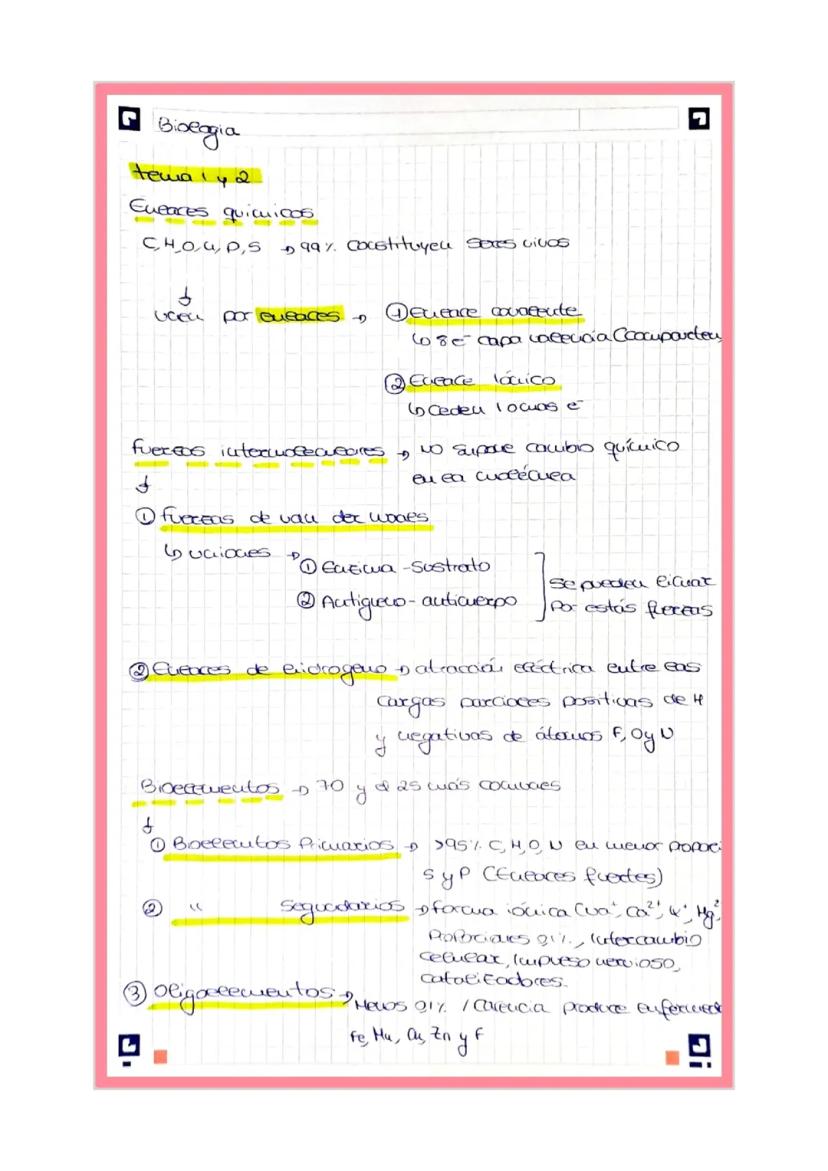 Biología
tema 1 y 2
Enlaces químicos
C, H, O, N, P, S → 99% constituyen seres vivos
↓
unen por enlaces → ① Enlace covalente
↳ 8 e⁻ capa valencia (comparten
② Enlace iónico
↳ Ceden iones e⁻
fuerzas intermoleculares → no supone cambio químico
↓ en la molécula
① fuerzas de van der waals
↳ uniones → ① Enzima - Sustrato
② Antígeno - anticuerpo
Se pueden eliminar
por estás fuerzas
② Enlaces de hidrogeno → atracción eléctrica entre las
cargas parciales positivas de H
y negativas de átomos F, O y N
Bioelementos → 70 y d 25 más comunes
↓
① Bioelementos Primarios → >95% C, H, O, N en menor proporci
S y P (Enlaces fuertes)
② " Segundarios → forma iónica (Na⁺, Ca²⁺, K⁺, Mg²
Proporciones 0,1%, intercambio
celular, impulso nervioso,
catalizadores.
③ Oligoelementos → Menos 0,1% / Carencia produce enfermed
Fe, Mn, Cu, Zn y F